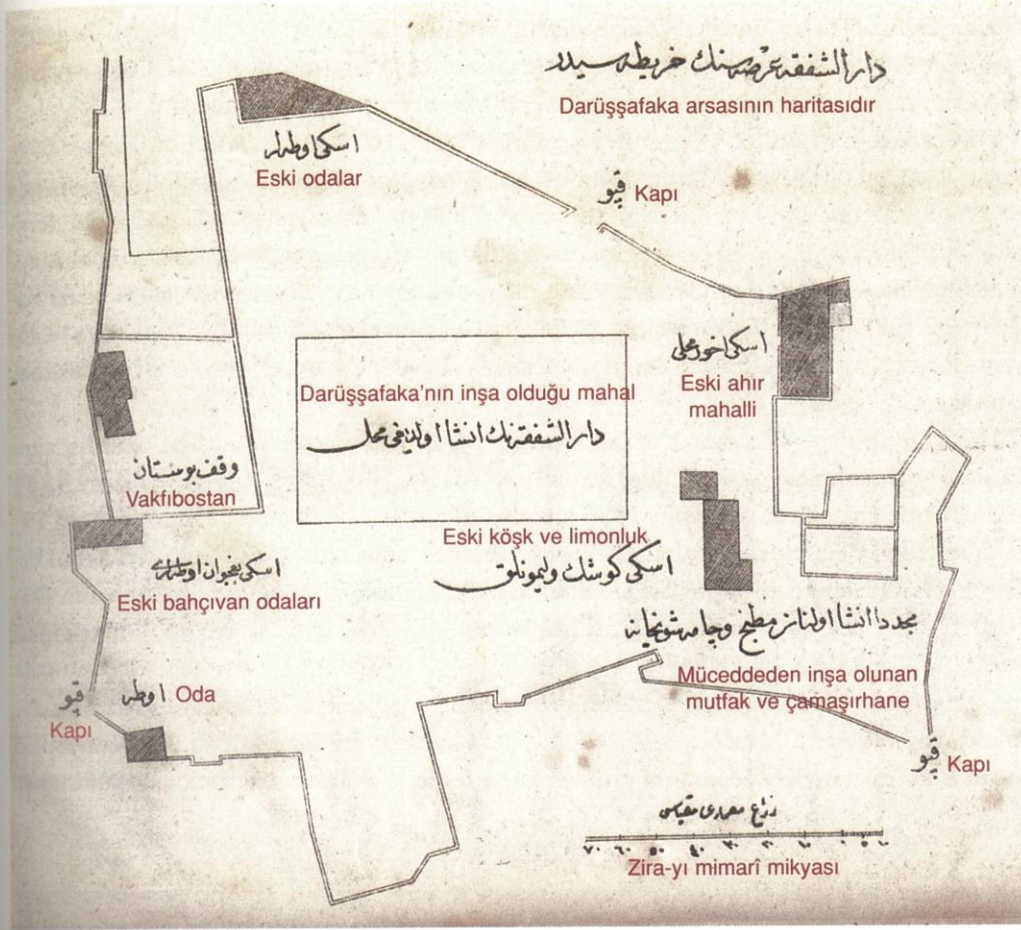 دار الشفقه عرصه سنك خريطه سيدر
Darüşşafaka arsasının haritasıdır
اسكی اوطه لر
Eski odalar
قپو
Kapı
اسكی اخور محلی
Eski ahır
mahalli
Darüşşafaka'nın inşa olduğu mahal
دار الشفقه نك انشا اولديغی محل
وقف بوستان
Vakfıbostan
Eski köşk ve limonluk
اسكی كوشك وليمونلق
اسكی بغچوان اوطه لری
Eski bahçıvan odaları
مجددا انشا اولنان مطبخ وچامه شويخانه
Müceddeden inşa olunan
mutfak ve çamaşırhane
قپو
Kapı
اوطه
Oda
قپو
Kapı
ذراع معماری مقياسی
٧٠ ٦٠ ٥٠ ٤٠ ٣٠ ٢٠ ١٠
Zira-yı mimarî mikyası